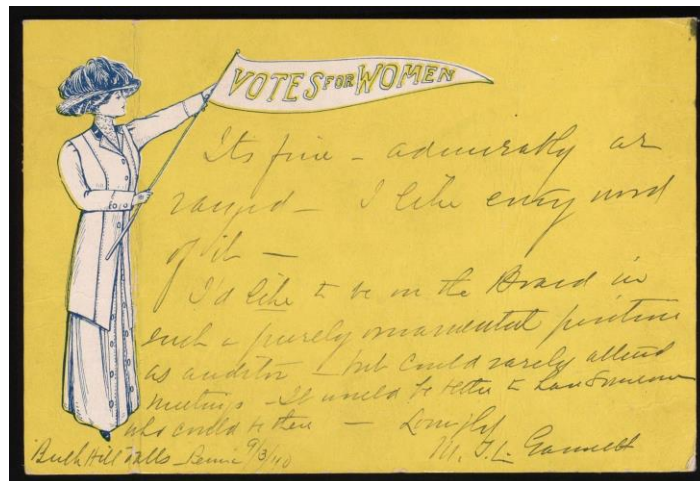 VOTES FOR WOMEN
Its fine – admirably ar
ranged – I like every word
of it –
I'd like to be on the Board in
such a purely ornamental position
as auditor – but could rarely attend
meetings – It would be better to have someone
who could be there – Lovingly
Buck Hill Falls Penna 9/3/10 M. T. L. Gannett